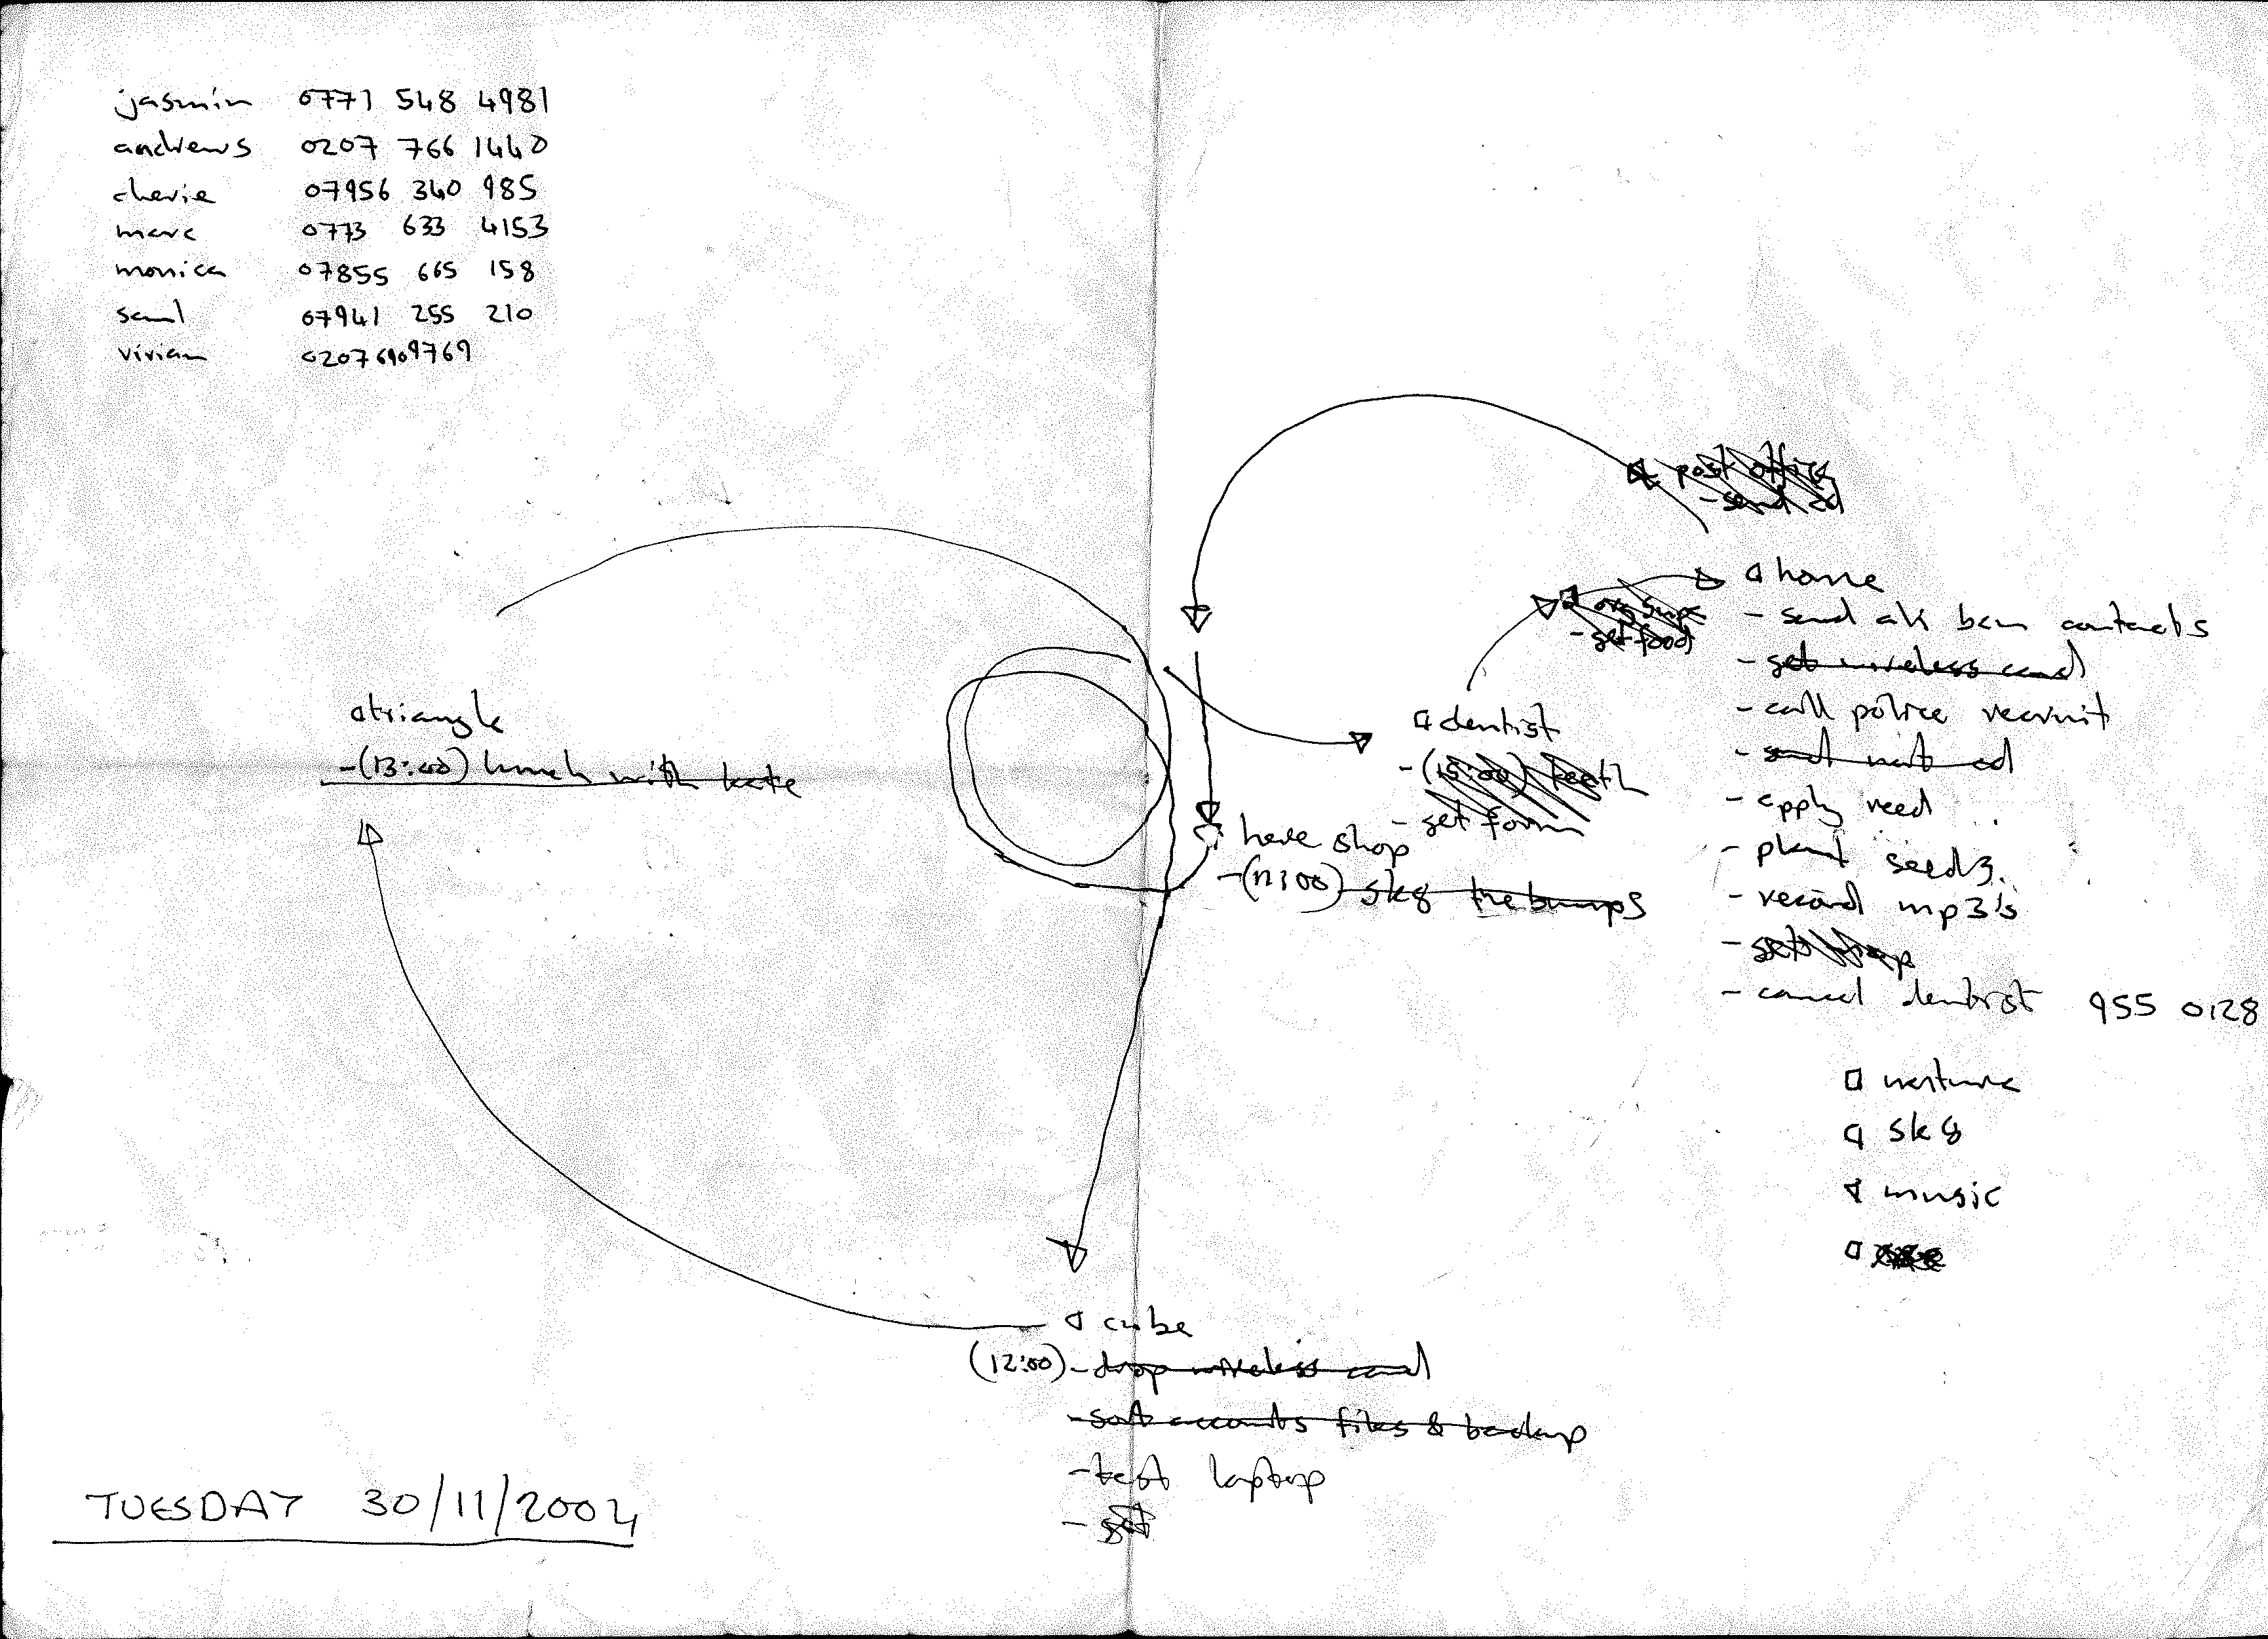 jasmin 0771 548 4981
andrews 0207 766 1440
cherie 07956 340 985
marc 0773 633 4153
monica 07855 665 158
saul 07941 255 210
vivian 0207 690 9769
post office
- send cd
home
- send ak bcm contacts
- get wireless card
- call police recruit
- cd
- apply reed
- plant seeds.
- record mp3's
- cancel dentist 955 0128
- get food
triangle
- (13:00) lunch with kate
dentist
- (15:00) keith
- get form
here shop
- (11:00) sk8 the bumps
nurture
sk8
music
cube
(12:00) - drop wireless card
- sort accounts files & backup
- test laptop
- get
TUESDAY 30/11/2004